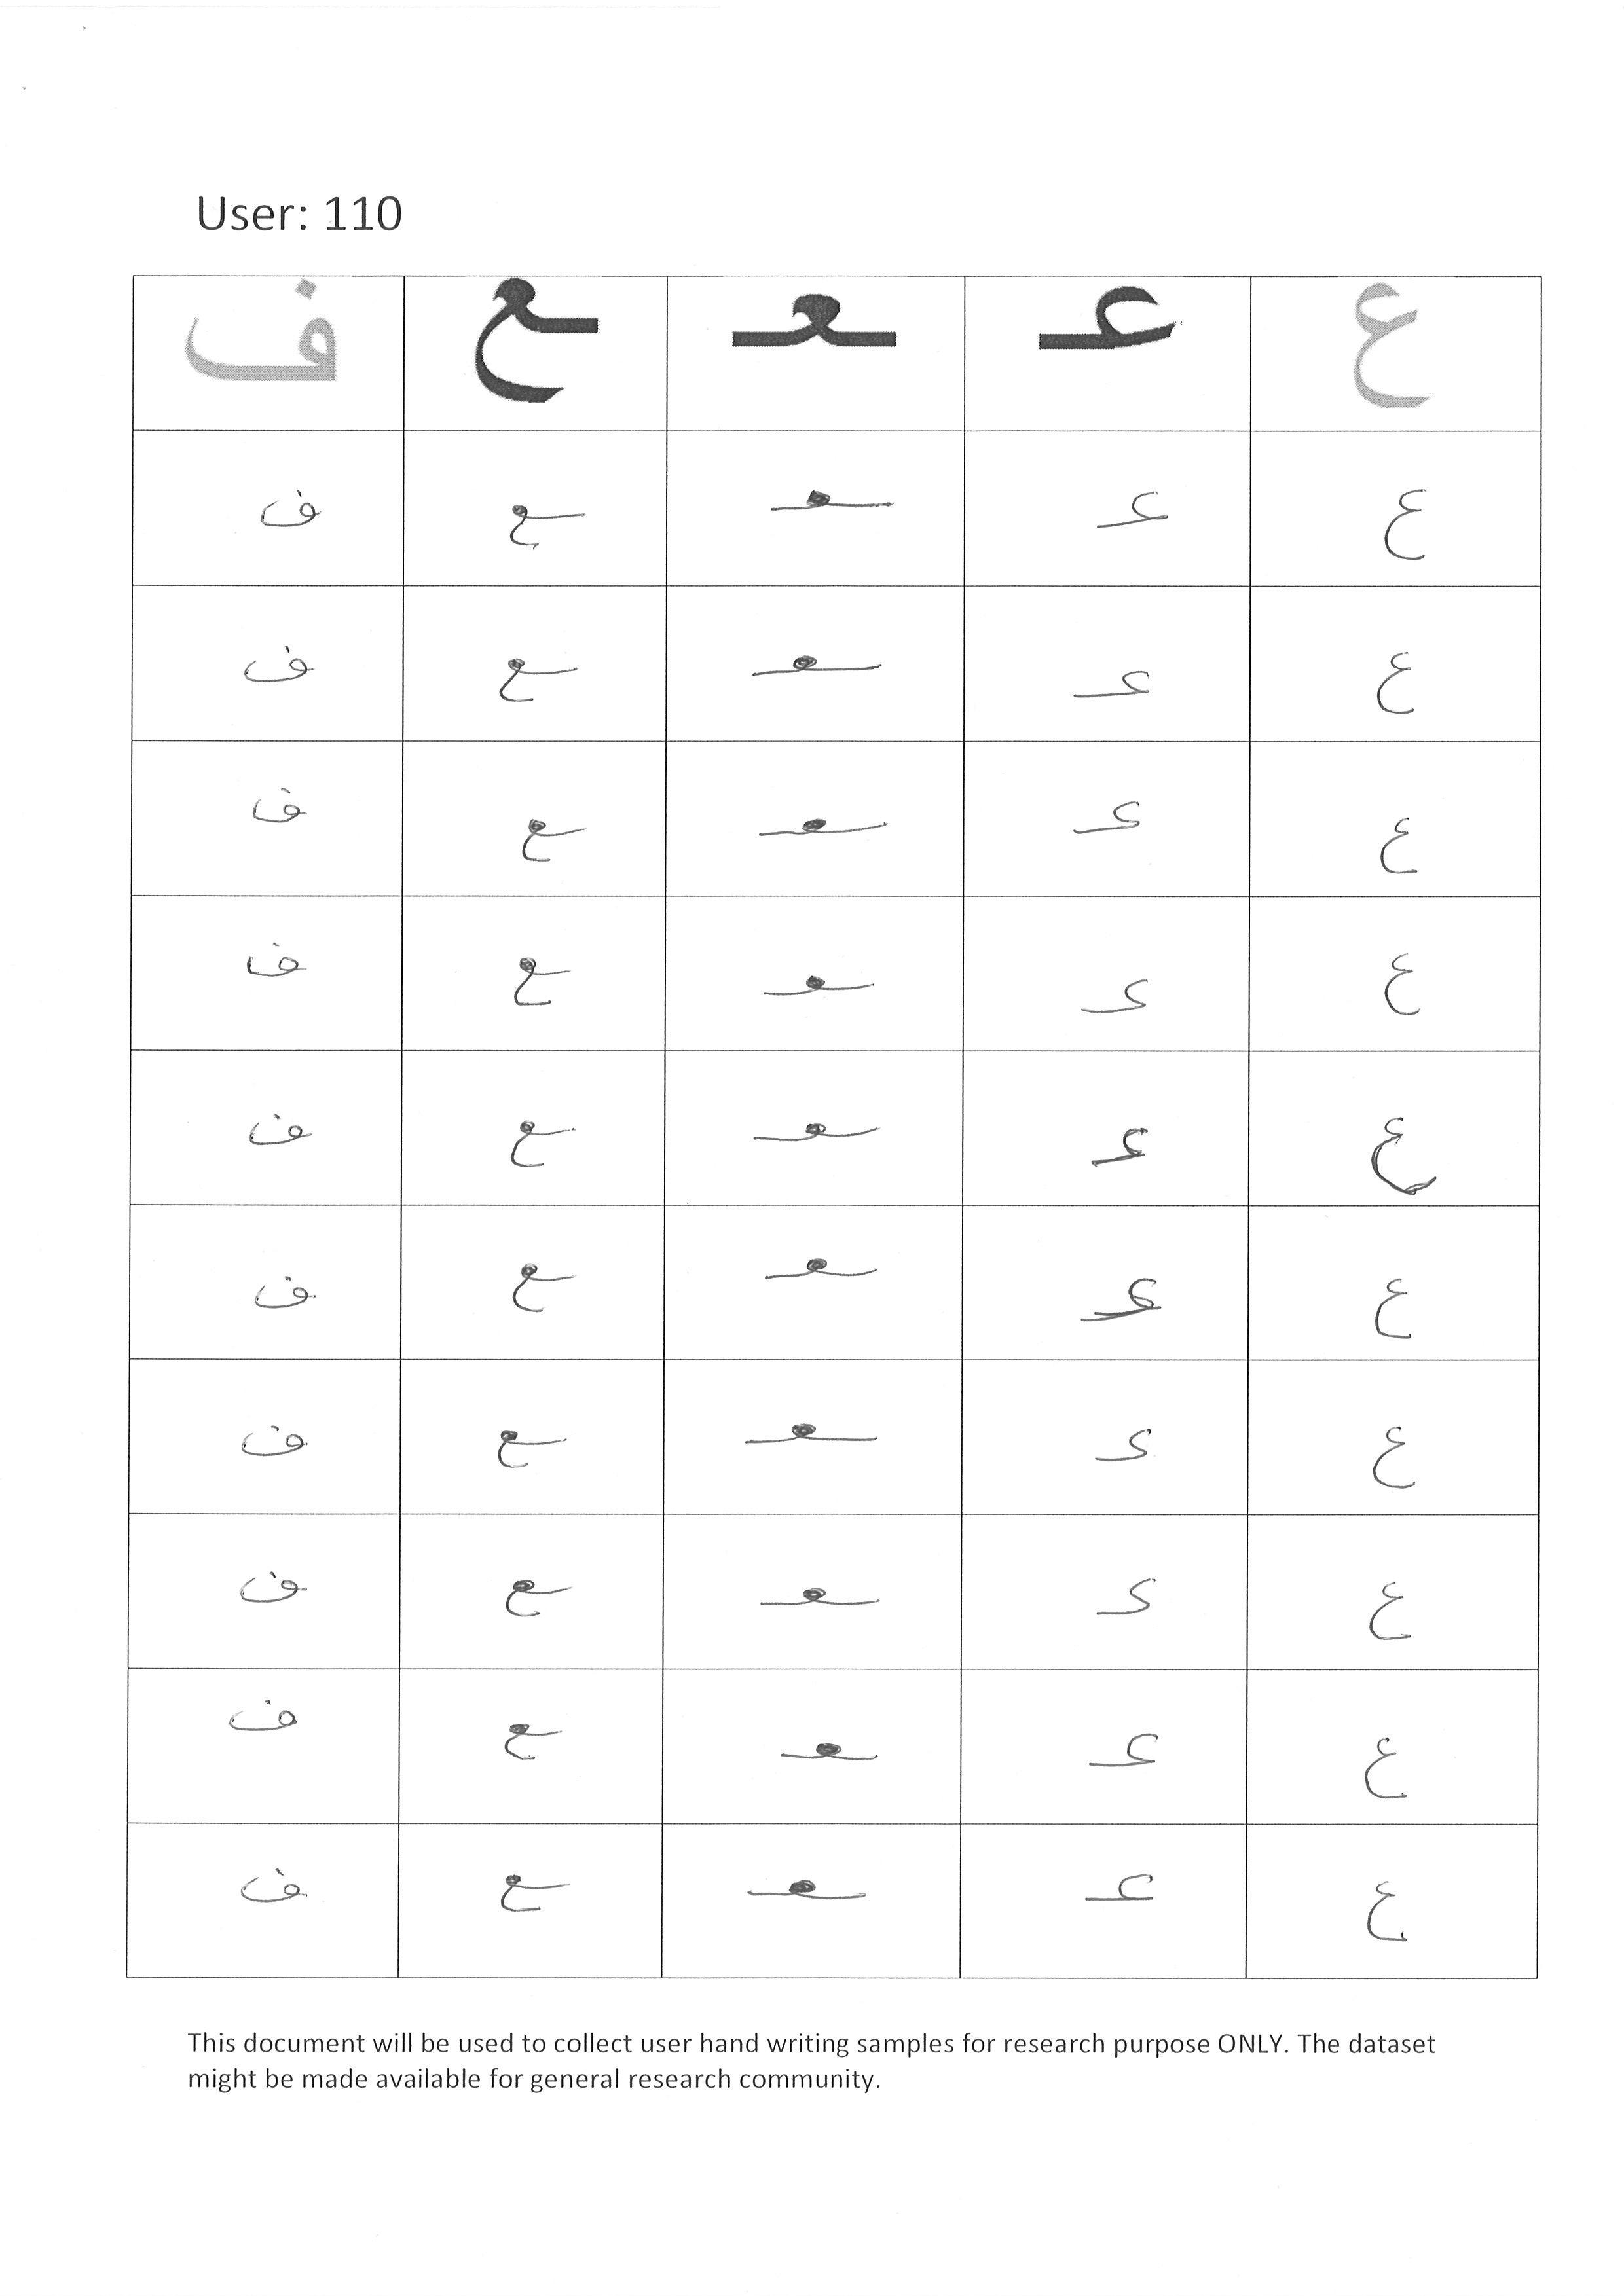 User: 110
ع عـ ـعـ ـع ف
ع عـ ـعـ ـع ف
ع عـ ـعـ ـع ف
ع عـ ـعـ ـع ف
ع عـ ـعـ ـع ف
ع عـ ـعـ ـع ف
ع عـ ـعـ ـع ف
ع عـ ـعـ ـع ف
ع عـ ـعـ ـع ف
ع عـ ـعـ ـع ف
ع عـ ـعـ ـع ف
This document will be used to collect user hand writing samples for research purpose ONLY. The dataset
might be made available for general research community.